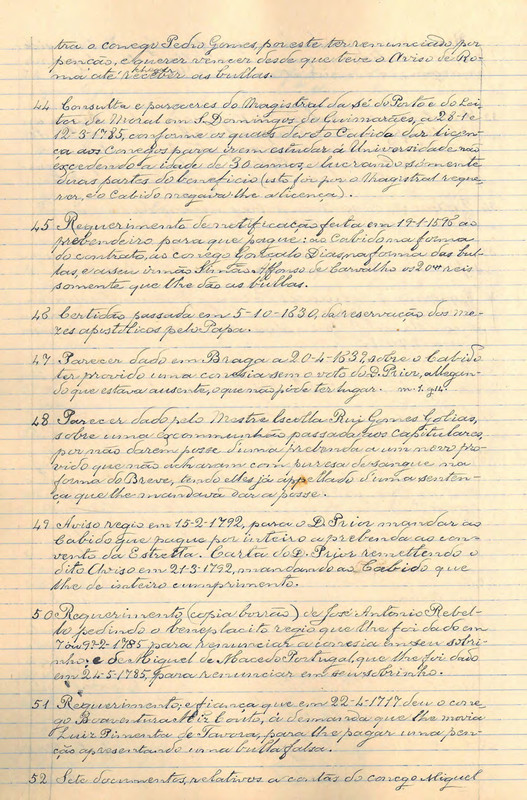 tra o conego Pedro Gomes, por este ter renunciado por
penção, e querer vencer desde que teve o Aviso de Ro-
ma até receber as bullas.
44 Consulta e pareceres do Magistral da sé do Porto e do Lei-
tor de Moral em S. Domingos de Guimarães, a 28-1 e
12-3-1785, conforme os quaes deve o Cabido dar licen-
ça aos Conegos para irem estudar á Universidade não
excedendo a idade de 30 annos, e lucrando sómente
duas partes do beneficio (isto foi por o Magistral reque-
rer, e o Cabido negava-lhe a licença).
45 Requerimento de notificação feita em 19-1-1596 ao
prebendeiro para que pague: ao Cabido na forma
do contrato, ao conego Gonçalo Dias na forma das bul-
las, e a seu irmão Simão Affonso de Carvalho os reis
somente que lhe dão as bullas.
46 Certidão passada em 5-10-1630, da reservação dos me-
zes apostolicos pelo Papa.
47 Parecer dado em Braga a 20-4-1632, sobre o Cabido
ter provido uma conesia sem o voto do D. Prior, allegan-
do que estava ausente, o que não póde ter lugar.
48 Parecer dado pelo Mestre Escolla Rui Gomes Golias,
sobre uma excommunhão passada aos Capitulares,
por não darem posse d'uma prebenda a um novo pro-
vido que não acharam com puresa de sangue na
forma do Breve, tendo elles já appellado d'uma senten-
ça que lhe mandava dar a posse.
49 Aviso regio em 15-2-1792, para o D. Prior mandar ao
Cabido que pague por inteiro a prebenda ao con-
vento da Estrella. Carta do D. Prior remettendo o
dito Aviso em 21-3-1792, mandando ao Cabido que
lhe de inteiro cumprimento.
50 Requerimento (copia borrão) de José Antonio Rebel-
lo pedindo o beneplacito regio que lhe foi dado em
7 ou 9-2-1785 para renunciar a conesia em seu sobri-
nho; e de Miguel de Macedo Portugal, que lhe foi dado
em 24-5-1785, para renunciar em seu sobrinho.
51 Requerimento, e fiança que em 22-4-1717 deu o cone-
go Boaventura Miz Couto, á demanda que lhe movia
Luiz Pimenta de Tavora, para lhe pagar uma pen-
ção apresentando uma bulla falsa.
52 Sete documentos, relativos a contas do conego Miguel